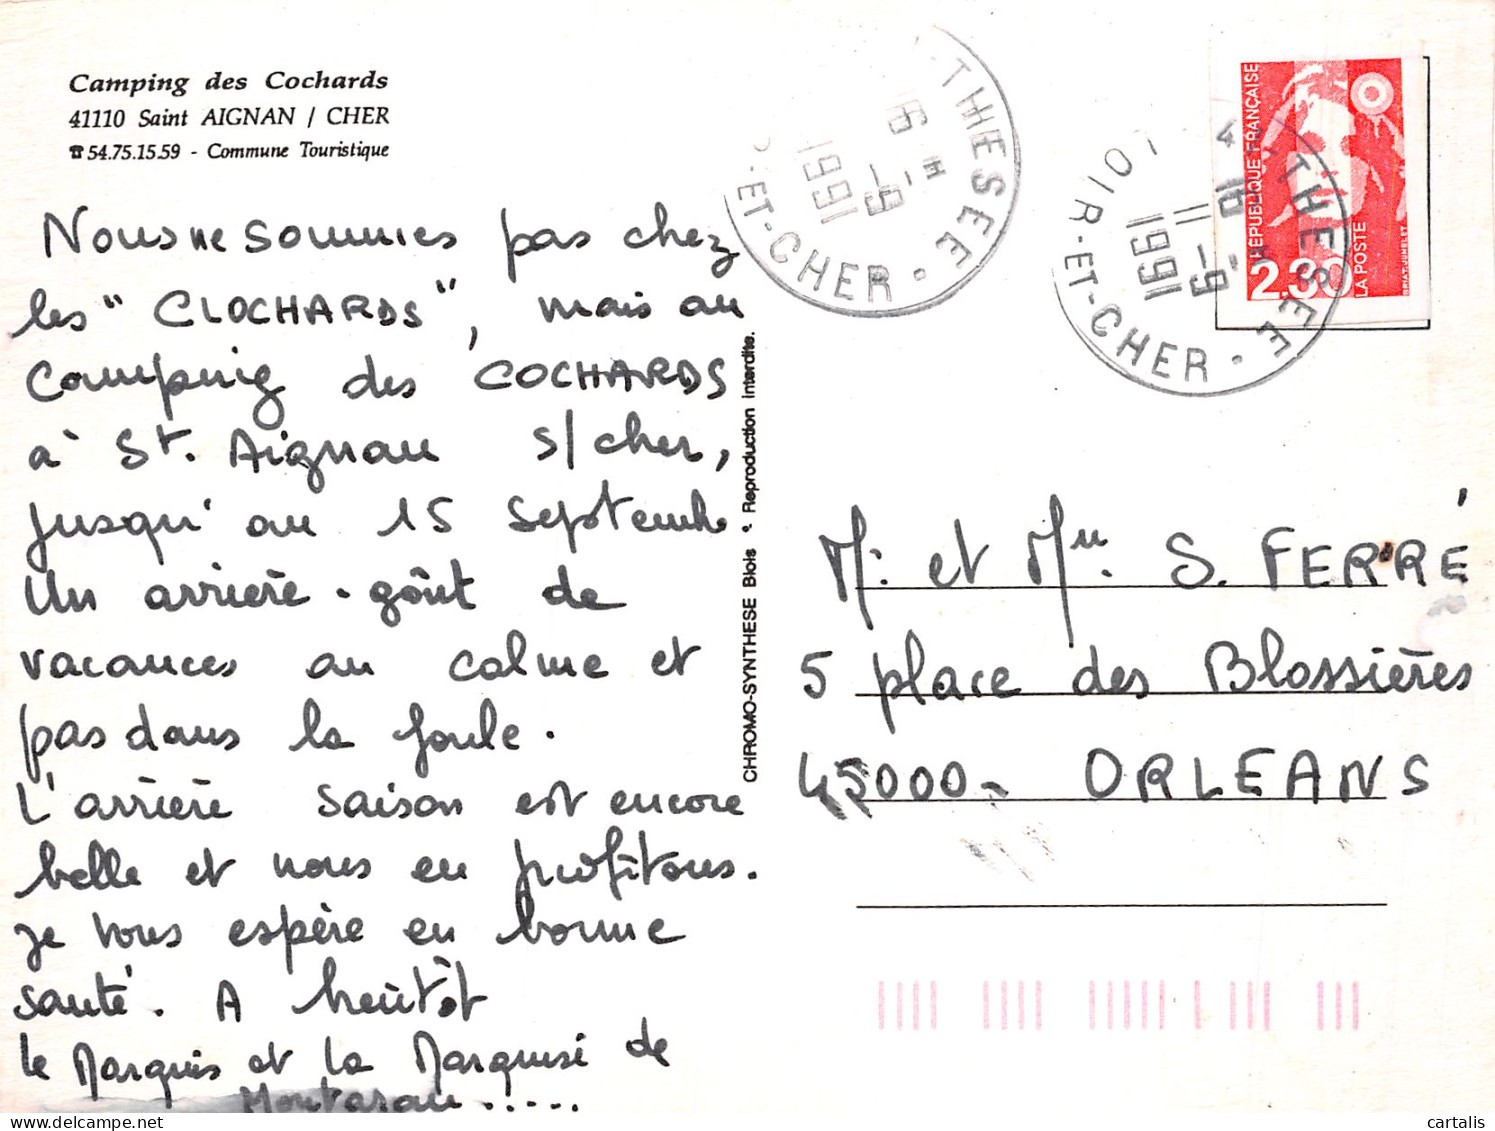 Camping des Cochards
41110 Saint AIGNAN / CHER
☎ 54.75.15.59 - Commune Touristique
Nous ne sommes pas chez
les "CLOCHARDS", mais au
Camping des COCHARDS
à St. Aignan s/cher,
jusqu'au 15 septembre
Un arrière-goût de
vacances au calme et
pas dans la foule.
L'arrière saison est encore
belle et nous en profitons.
je vous espère en bonne
santé. A bientôt
le Marquis et la Marquise de
Montaran.....
CHROMO-SYNTHESE Blois * Reproduction interdite.
THESEE
LOIR-ET-CHER
16 H
6-9
1991
THESEE
LOIR-ET-CHER
16 H
11-9
1991
REPUBLIQUE FRANÇAISE
2,30
LA POSTE
BRIAT-JUMELET
Mr. et Mme. S. FERRÉ
5 place des Blossières
45000 - ORLEANS
cartalis